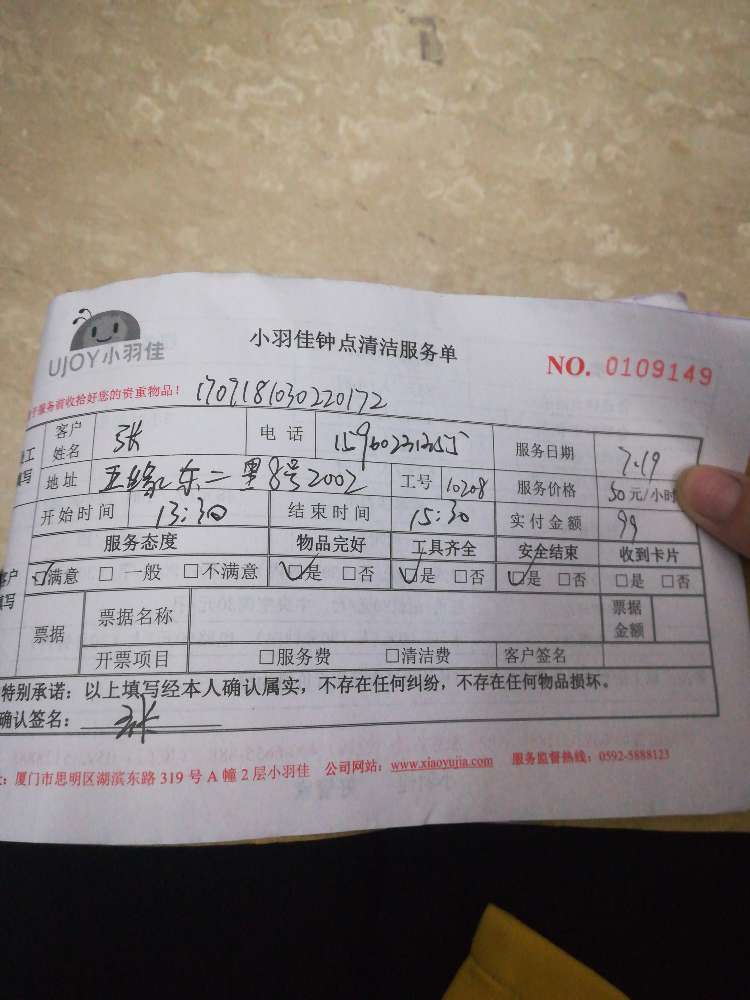 UJOY小羽佳
小羽佳钟点清洁服务单
NO. 0109149
服务前收拾好您的贵重物品！ 1709181030220172
客户姓名 张 电话 服务日期 7.19
地址 五缘东二里8号2002 工号 10208 服务价格 50元/小时
开始时间 13:30 结束时间 15:30 实付金额 99
服务态度 物品完好 工具齐全 安全结束 收到卡片
☑满意 □一般 □不满意 ☑是 □否 ☑是 □否 ☑是 □否 □是 □否
票据 票据名称 票据金额
开票项目 □服务费 □清洁费 客户签名
特别承诺：以上填写经本人确认属实，不存在任何纠纷，不存在任何物品损坏。
确认签名： 张
：厦门市思明区湖滨东路 319 号 A 幢 2 层小羽佳 公司网站：www.xiaoyujia.com 服务监督热线：0592-5888123